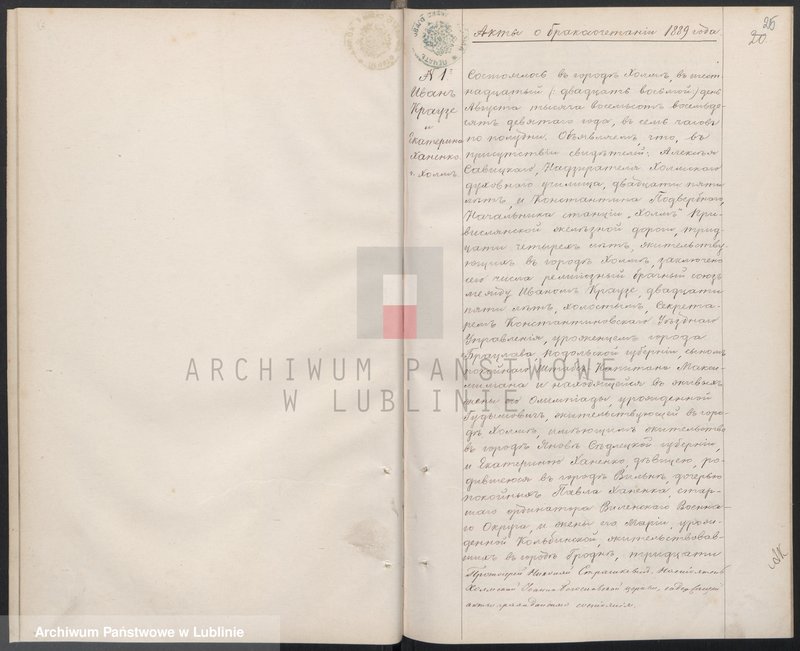 26
20
Акты о бракосочетаніи 1889 года
№ 1
Иванъ
Краузе
и
Екатерина
Ханенко
г. Холмъ.
Состоялось въ городѣ Холмѣ, въ шест-
надцатый (: двадцать восьмой:) день
Августа тысяча восемьсотъ восемьде-
сятъ девятаго года, въ семь часовъ
по полудни. Объявляемъ, что, въ
присутствіи свидѣтелей: Алексѣя
Савицкаго, Надзирателя Холмскаго
духовнаго училища, двадцати пяти
лѣтъ, и Константина Подвербнаго,
Начальника станціи "Холмъ" При-
вислянской желѣзной дороги, трид-
цати четырехъ лѣтъ, жительству-
ющихъ въ городѣ Холмѣ, заключенъ
сего числа религіозный брачный союзъ
между Иваномъ Краузе, двадцати
пяти лѣтъ, холостымъ, Секрета-
ремъ Константиновскаго Уѣзднаго
Управленія, уроженцемъ города
Брацлава Подольской губерніи, сыномъ
покойнаго Штабсъ Капитана Макси-
миліана и находящейся въ живыхъ
жены его Олимпіады, урожденной
жительствующей въ горо-
дѣ Холмѣ, имѣющимъ жительство
въ городѣ Яновѣ Сѣдлецкой губерніи,
и Екатериною Ханенко, дѣвицею, ро-
дившеюся въ городѣ Вильнѣ, дочерью
покойныхъ Павла Ханенка, стар-
шаго ординатора Виленскаго Военна-
го Округа, и жены его Маріи, урож-
денной Кольбинской, жительствовав-
шихъ въ городѣ Гроднѣ, тридцати
Протоіерей Николай Страшкевичъ, Настоятель
Холмской Іоанно-Богословской церкви, содержащій
акты гражданскаго состоянія.
ARCHIWUM PAŃSTWOWE
W LUBLINIE
Archiwum Państwowe w Lublinie